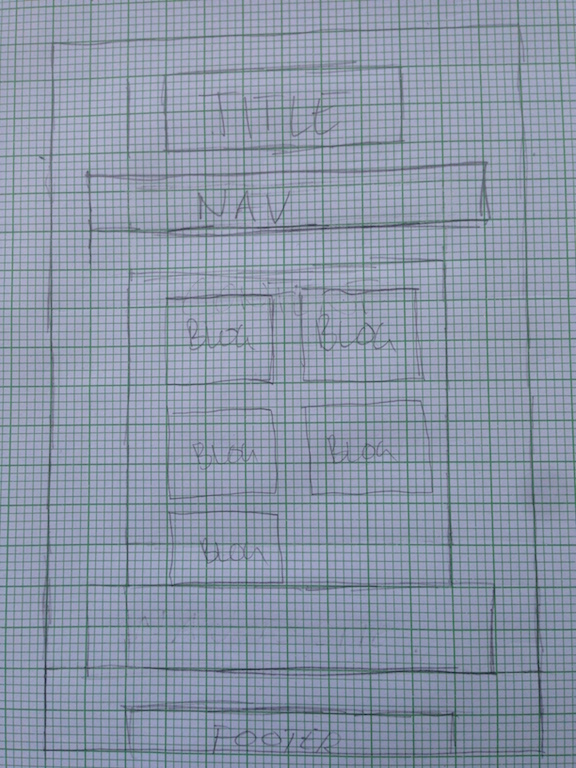 TITLE
NAV
BLOG BLOG
BLOG BLOG
BLOG
FOOTER